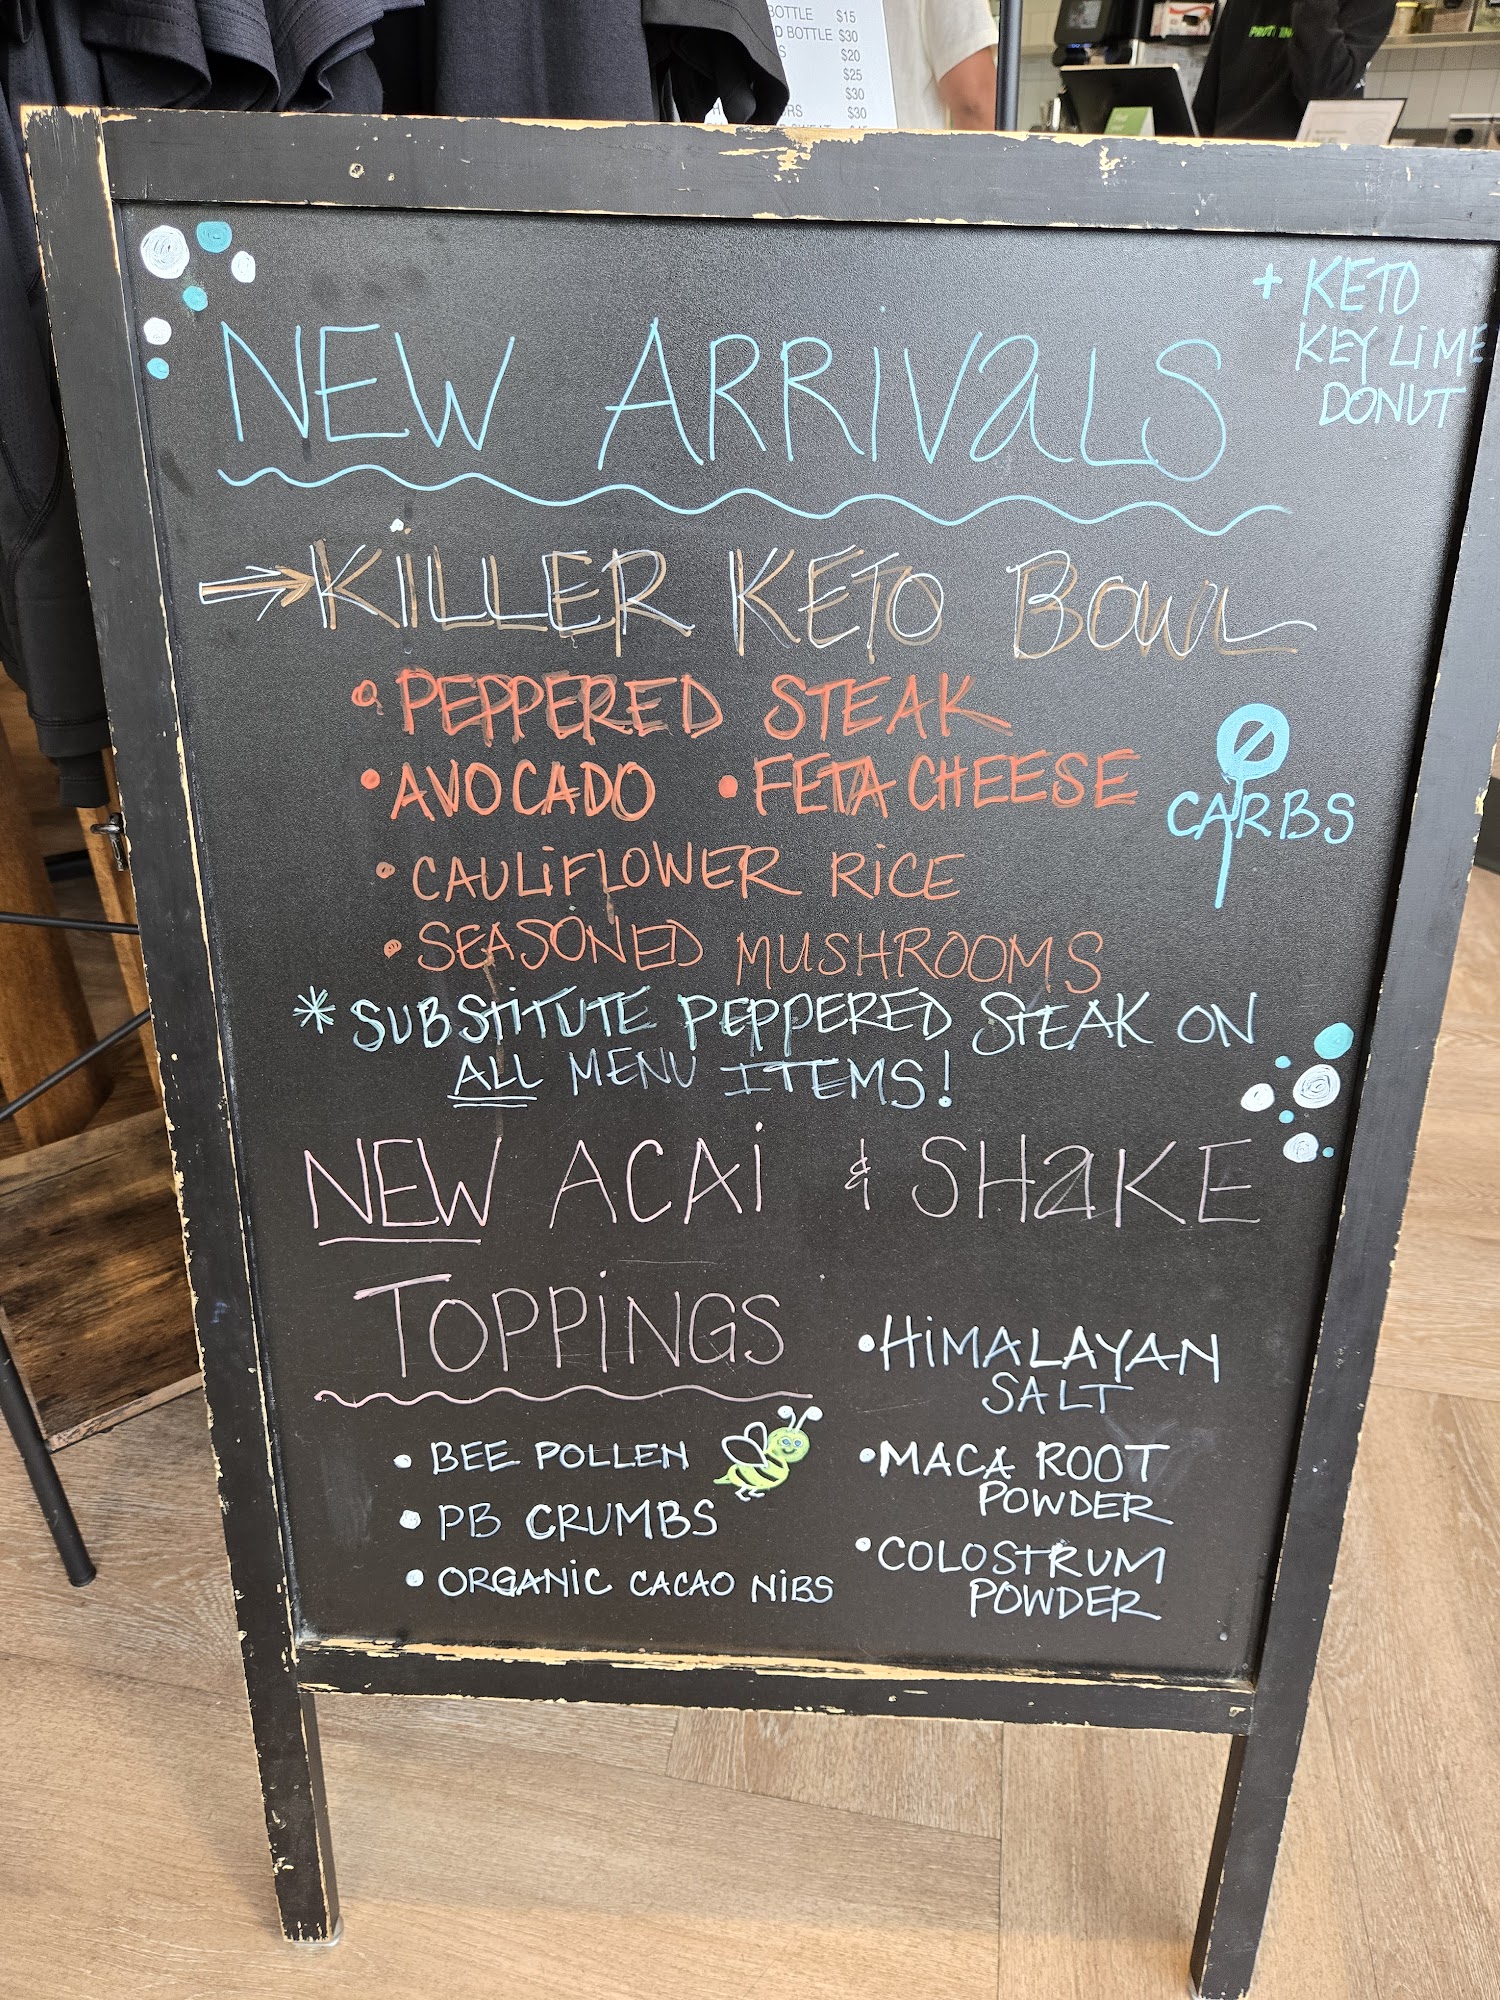 BOTTLE $15
D BOTTLE $30
$20
$25
$30
$30
+ KETO
KEY LIME
DONUT
NEW ARRIVALS
KILLER KETO BOWL
• PEPPERED STEAK
• AVOCADO • FETA CHEESE
Ø
CARBS
• CAULIFLOWER RICE
• SEASONED MUSHROOMS
* SUBSTITUTE PEPPERED STEAK ON
ALL MENU ITEMS!
NEW ACAI & SHAKE
TOPPINGS
• BEE POLLEN
• PB CRUMBS
• ORGANIC CACAO NIBS
• HIMALAYAN
SALT
• MACA ROOT
POWDER
• COLOSTRUM
POWDER